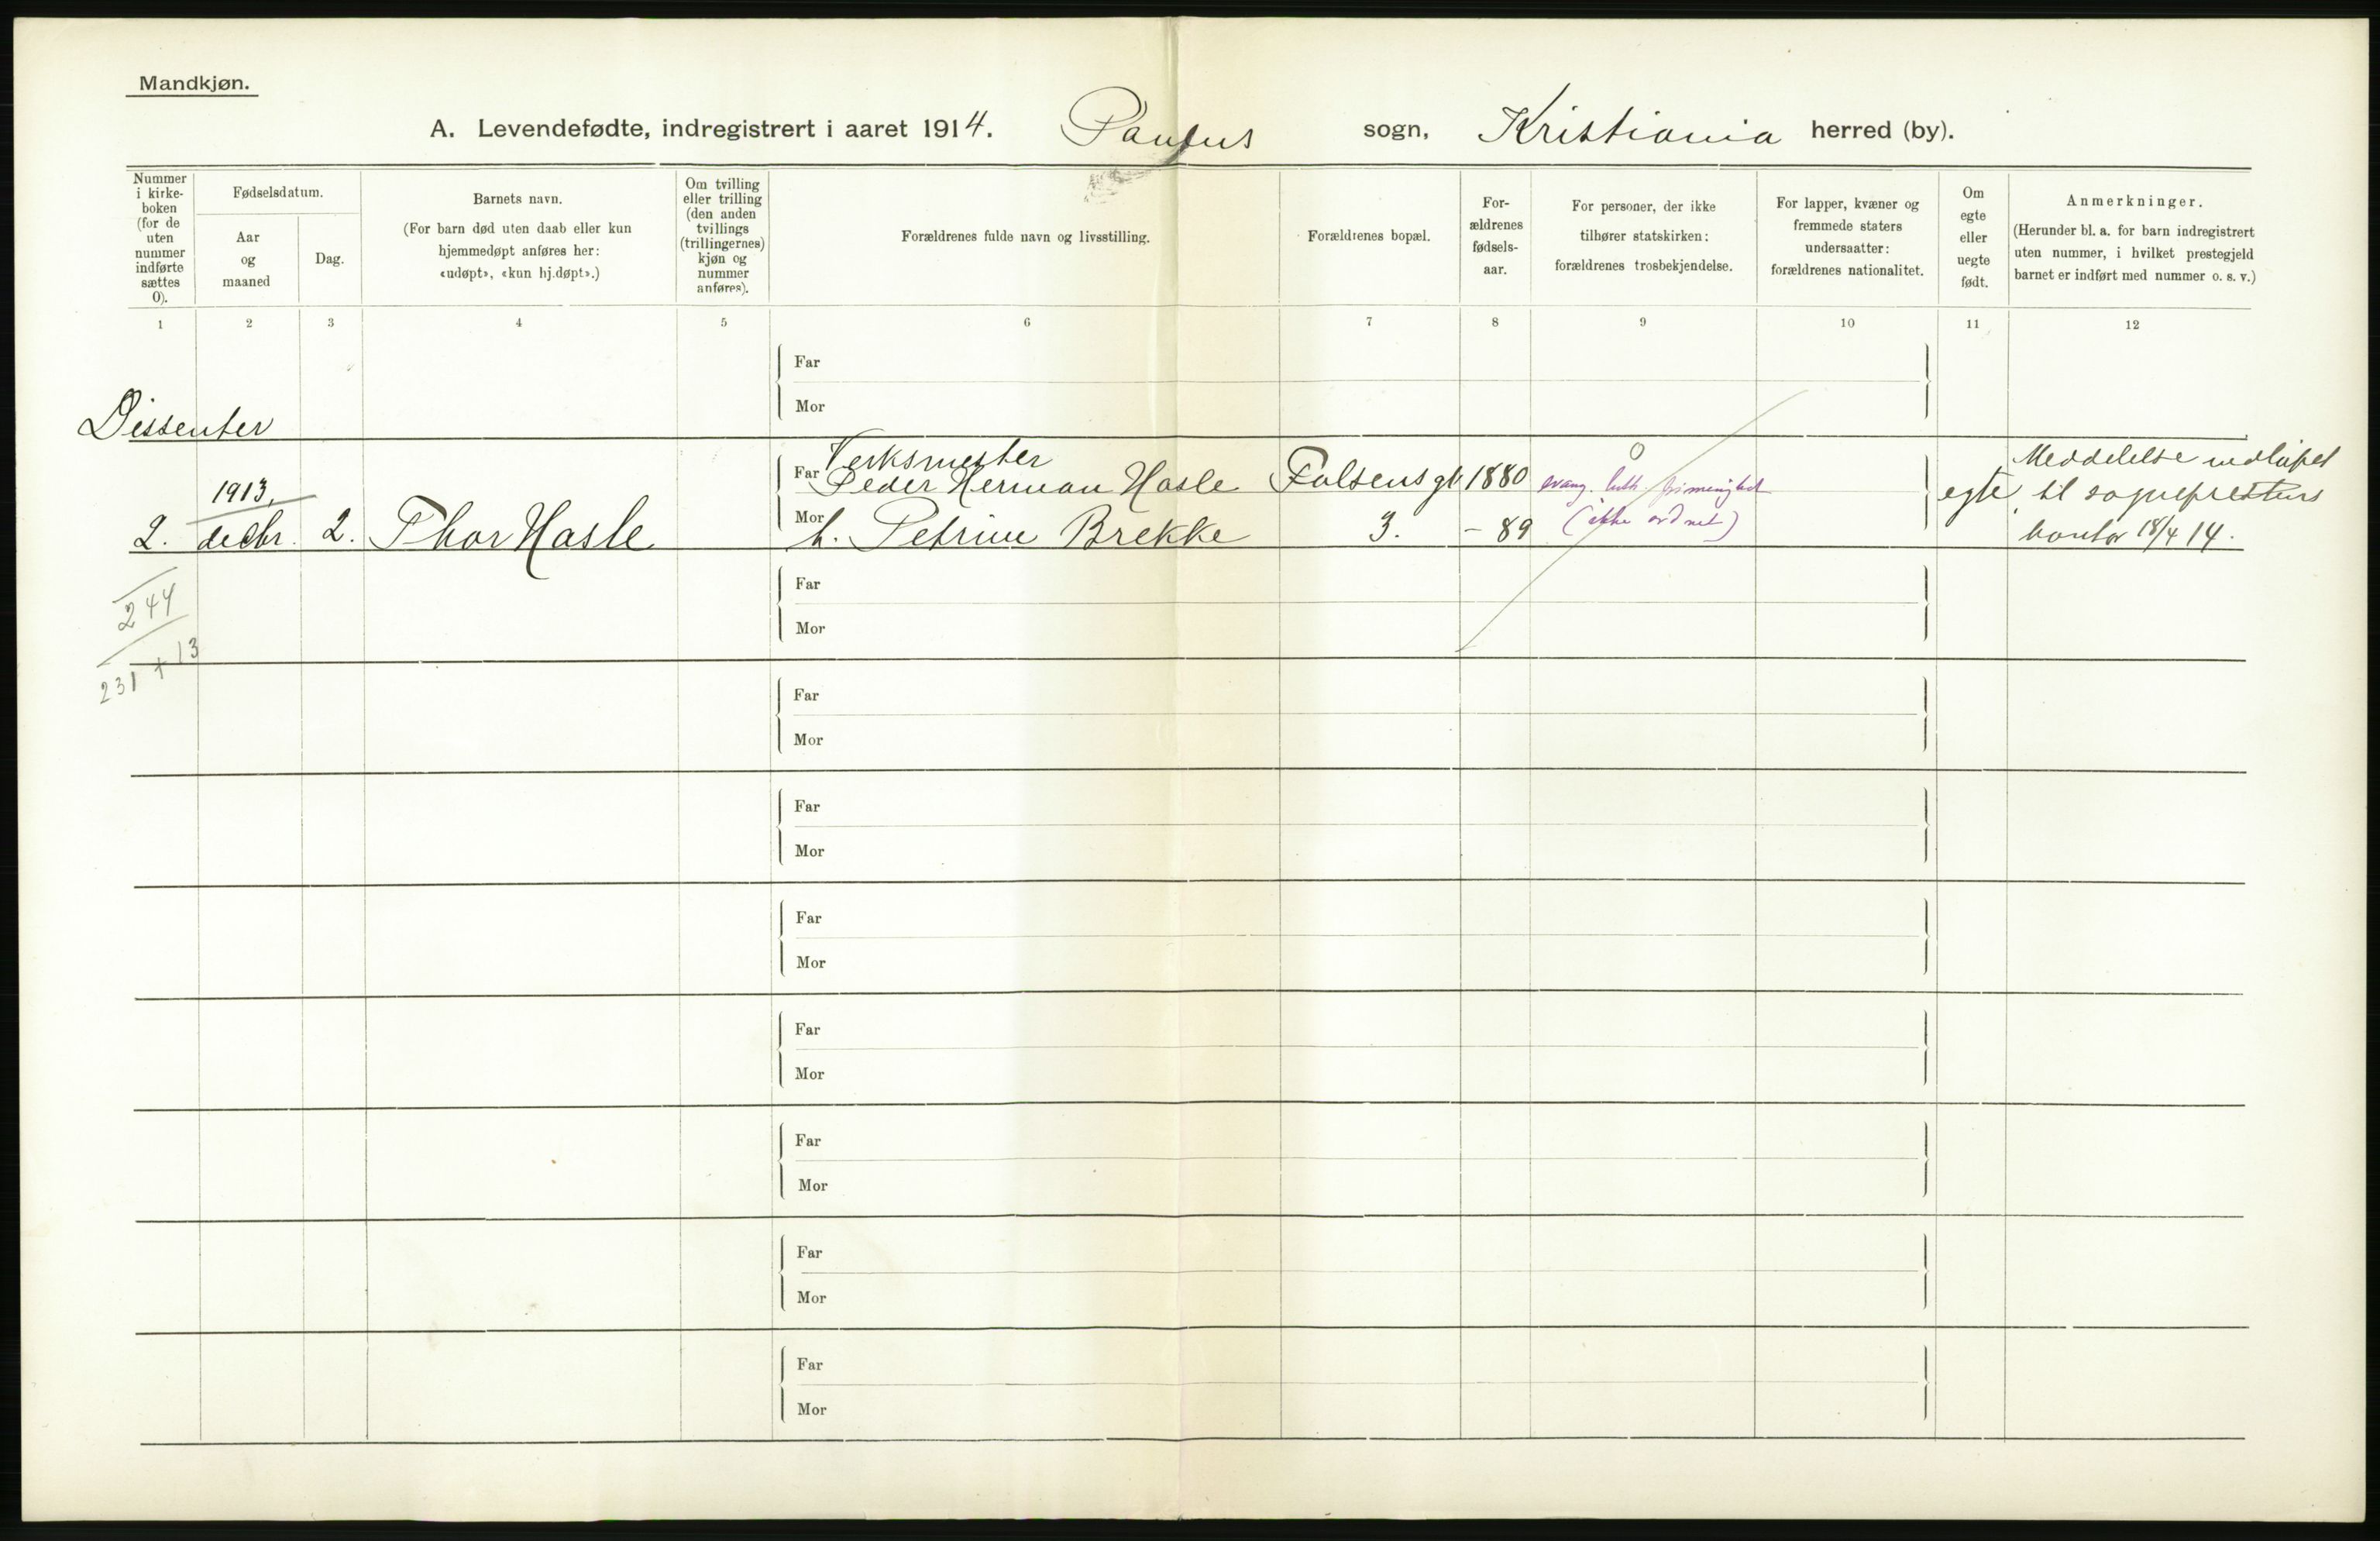 Mandkjøn.
A. Levendefødte, indregistrert i aaret 1914. Paulus sogn, Kristiania herred (by).
Nummer
i kirke-
boken
(for de
uten
nummer
indførte
sættes
0).
Fødselsdatum.
Aar
og
maaned
Dag.
Barnets navn.
(For barn død uten daab eller kun
hjemmedøpt anføres her:
«udøpt», «kun hj.døpt».)
Om tvilling
eller trilling
(den anden
tvillings
(trillingernes)
kjøn og
nummer
anføres).
Forældrenes fulde navn og livsstilling.
Forældrenes bopæl.
For-
ældrenes
fødsels-
aar.
For personer, der ikke
tilhører statskirken:
forældrenes trosbekjendelse.
For lapper, kvæner og
fremmede staters
undersaatter:
forældrenes nationalitet.
Om
egte
eller
uegte
født.
Anmerkninger.
(Herunder bl. a. for barn indregistrert
uten nummer, i hvilket prestegjeld
barnet er indført med nummer o. s. v.)
1 2 3 4 5 6 7 8 9 10 11 12
Far
Mor
Dissenter
Verksmester
Far Peder Herman Hasle Falsens gt. 1880 evang. luth. frimenighet
1913.
2. decbr. 2. Thor Hasle
Mor h. Petrine Brekke 3. - 89 (ikke ordnet)
egte
Meddelelse indløpet
til sogneprestens
kontor 18/4 14.
244
231 + 13
Far
Mor
Far
Mor
Far
Mor
Far
Mor
Far
Mor
Far
Mor
Far
Mor
Far
Mor